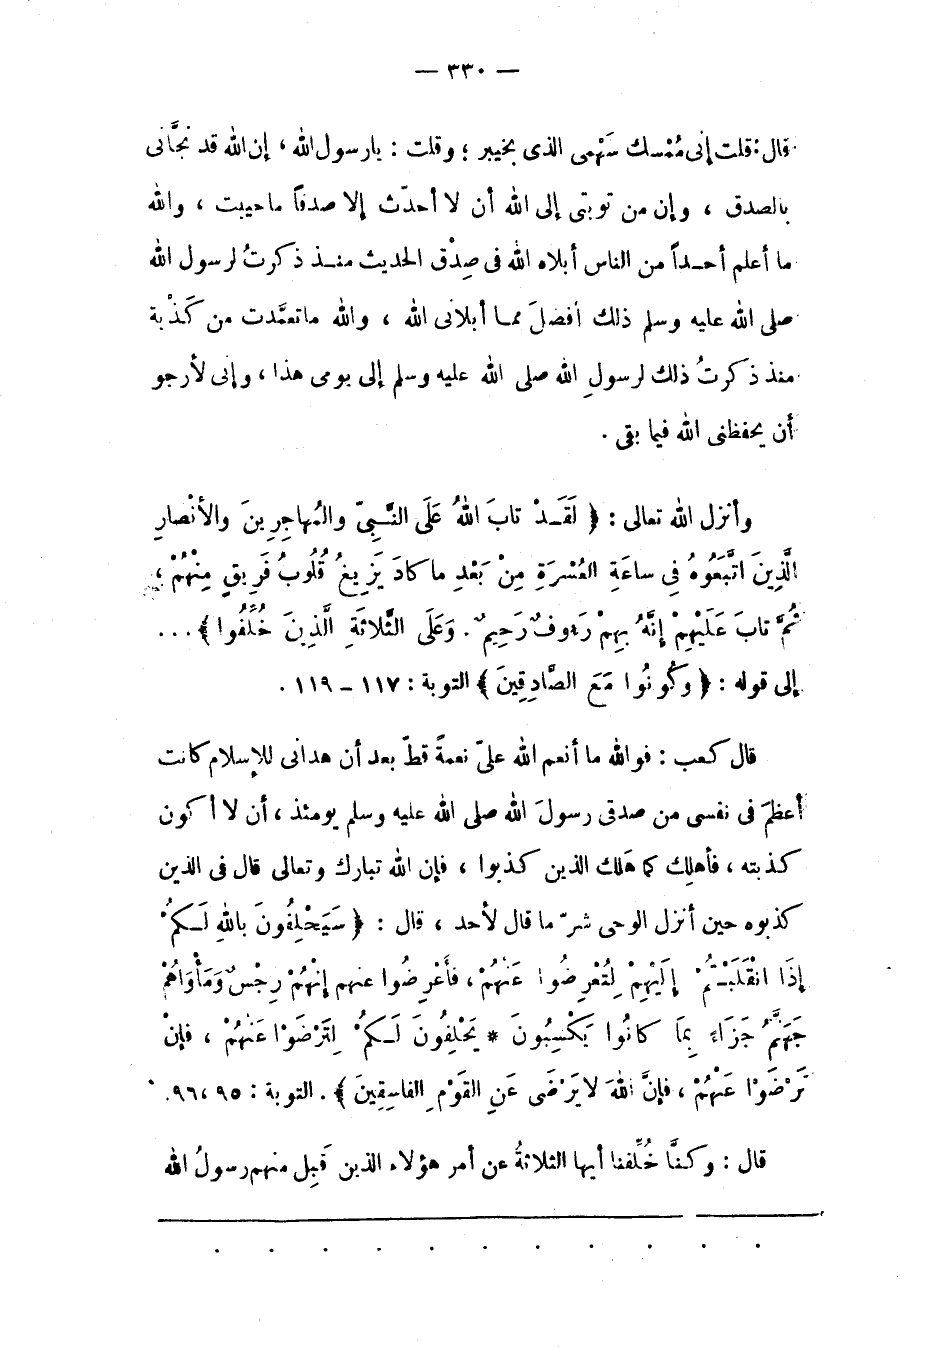 — ٣٣٠ —
قال : قلت إنى مُمْسك سَهْمى الذى بخيبر ؛ وقلت : يارسول الله ، إن الله قد نجَّانى
بالصدق ، وإن من توبتى إلى الله أن لا أحدّث إلا صدقاً ما حييت ، والله
ما أعلم أحداً من الناس أبلاه الله فى صِدْق الحديث منذ ذكرتُ لرسول الله
صلى الله عليه وسلم ذلك أفضلَ مما أبلانى الله ، والله ماتعمَّدت من كَذْبة
منذ ذكرتُ ذلك لرسولِ الله صلى الله عليه وسلم إلى يومى هذا ، وإنى لأرجو
أن يحفظنى الله فيما بقى .
وأنزل الله تعالى : ﴿ لَقَدْ تابَ اللهُ عَلَى النَّبِىّ والمُهاجِرِينَ والأنْصارِ
الَّذِينَ اتَّبَعُوهُ فِى ساعَةِ العُسْرَةِ مِنْ بَعْدِ ما كادَ يَزِيغُ قُلُوبُ فَرِيقٍ مِنْهُمْ ،
ثُمَّ تابَ عَلَيْهِمْ إنَّهُ بِهِمْ رَءوفٌ رَحِيمٌ . وَعَلَى الثَّلاثَةِ الَّذِينَ خُلِّفُوا ﴾ ...
إلى قوله : ﴿ وَكُونُوا مَعَ الصَّادِقِينَ ﴾ التوبة : ١١٧ – ١١٩ .
قال كعب : فوالله ما أنعم الله علىّ نعمةً قطّ بعد أن هدانى للإسلام كانت
أعظمَ فى نفسى من صدقى رسولَ الله صلى الله عليه وسلم يومئذ ، أن لا أكون
كذبته ، فأهلِك كما هَلك الذين كذبوا ، فإن الله تبارك وتعالى قال فى الذين
كذبوه حين أنزل الوحى شرّ ما قال لأحد ، قال : ﴿ سَيَحْلِفُونَ باللهِ لَكُمْ
إذَا انْقَلَبْتُمْ إلَيْهِمْ لِتُعْرِضُوا عَنْهُمْ ، فأَعْرِضُوا عنهم إنَّهُمْ رِجْسٌ وَمَأْوَاهُمْ
جَهَنَّمُ جَزَاءً بِمَا كانُوا يَكْسِبُونَ * يَحْلِفُونَ لَكُمْ لِتَرْضَوْا عَنْهُمْ ، فإنْ
تَرْضَوْا عَنْهُمْ ، فإنَّ اللهَ لا يَرْضَى عَنِ القَوْمِ الفاسِقِينَ ﴾ . التوبة : ٩٥ ، ٩٦ .
قال : وكنَّا خُلِّفنا أيها الثلاثةُ عن أمر هؤلاء الذين قَبِل منهم رسولُ الله
. . . . . . . . . . .